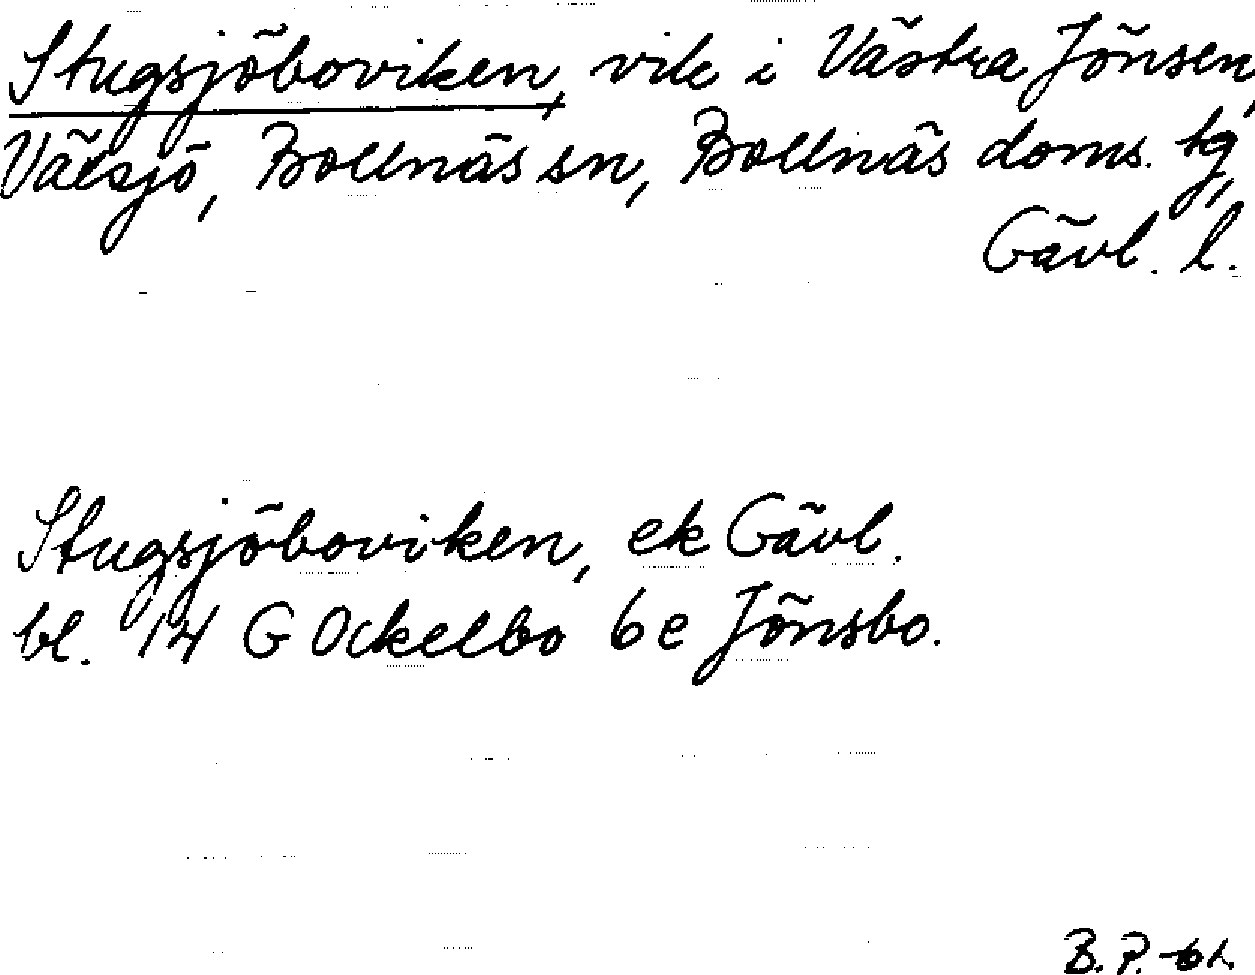 Stugsjöboviken, vik i Västra Jönsen,
Växsjö, Bollnäs sn, Bollnäs doms. tg,
Gävl. l.
Stugsjöboviken, ek Gävl.
bl. 14 G Ockelbo 6e Jönsbo.
B. P. -61.